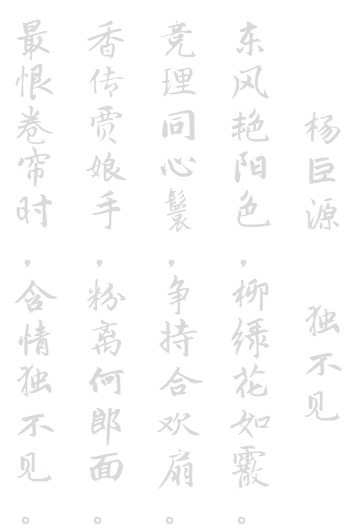 杨巨源 独不见
东风艳阳色，柳绿花如霰。
竞理同心鬟，争持合欢扇。
香传贾娘手，粉离何郎面。
最恨卷帘时，含情独不见。